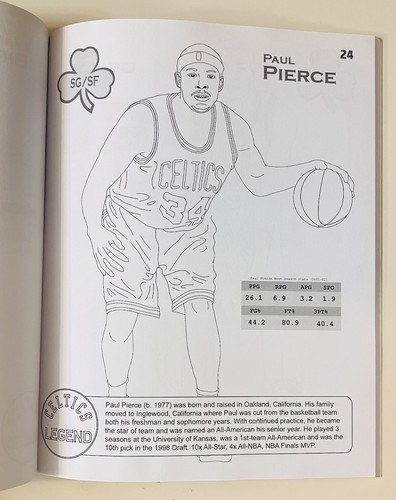 24
PAUL
PIERCE
SG/SF
CELTICS
34
Paul Pierce Best Season Stats (2001-02)
PPG RPG APG SPG
26.1 6.9 3.2 1.9
FG% FT% 3PT%
44.2 80.9 40.4
CELTICS
LEGEND
Paul Pierce (b. 1977) was born and raised in Oakland, California. His family
moved to Inglewood, California where Paul was cut from the basketball team
both his freshman and sophomore years. With continued practice, he became
the star of team and was named an All-American his senior year. He played 3
seasons at the University of Kansas, was a 1st-team All-American and was the
10th pick in the 1998 Draft. 10x All-Star, 4x All-NBA, NBA Finals MVP.